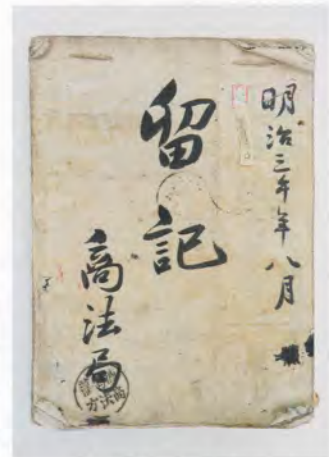 明治三午年 八月
留記
商法局